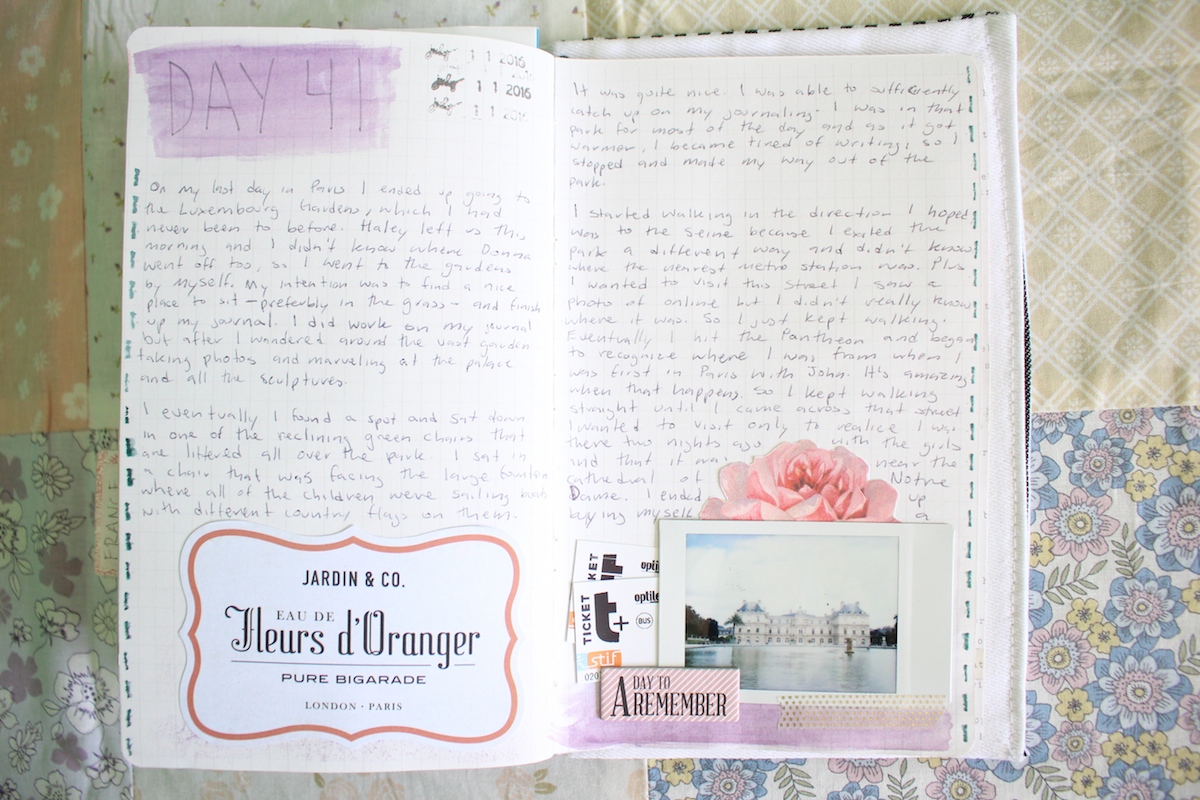 DAY 41
1 1 2016
1 1 2016
1 1 2016
On my last day in Paris I ended up going to
the Luxembourg Gardens, which I had
never been to before. Haley left us this
morning and I didn't know where Donna
went off too, so I went to the gardens
by myself. My intention was to find a nice
place to sit - preferbly in the grass - and finish
up my journal. I did work on my journal
but after I wandered around the vast garden
taking photos and marveling at the palace
and all the sculptures.
I eventually I found a spot and sat down
in one of the reclining green chairs that
are littered all over the park. I sat in
a chair that was facing the large fountain
where all of the children were sailing boats
with different country flags on them.
JARDIN & CO.
EAU DE
Fleurs d'Oranger
PURE BIGARADE
LONDON · PARIS
It was quite nice. I was able to sufficently
catch up on my journaling. I was in that
park for most of the day and as it got
warmer, I became tired of writing, so I
stopped and made my way out of the
park.
I started walking in the direction I hoped
was to the Seine because I exited the
park a different way and didn't know
where the nearest metro station was. Plus
I wanted to visit this street I saw a
photo of online but I didn't really know
where it was. So I just kept walking.
Eventually I hit the Pantheon and began
to recognize where I was from when I
was first in Paris with John. It's amazing
when that happens. So I kept walking
straight until I came across that street
I wanted to visit only to realize I was
there two nights ago with the girls
and that it was near the
cathedral of Notre
Dame. I ended up
buying myself a
TICKET
optile
TICKET
t+
optile
BUS
stif
020
A DAY TO
REMEMBER
FRANCE